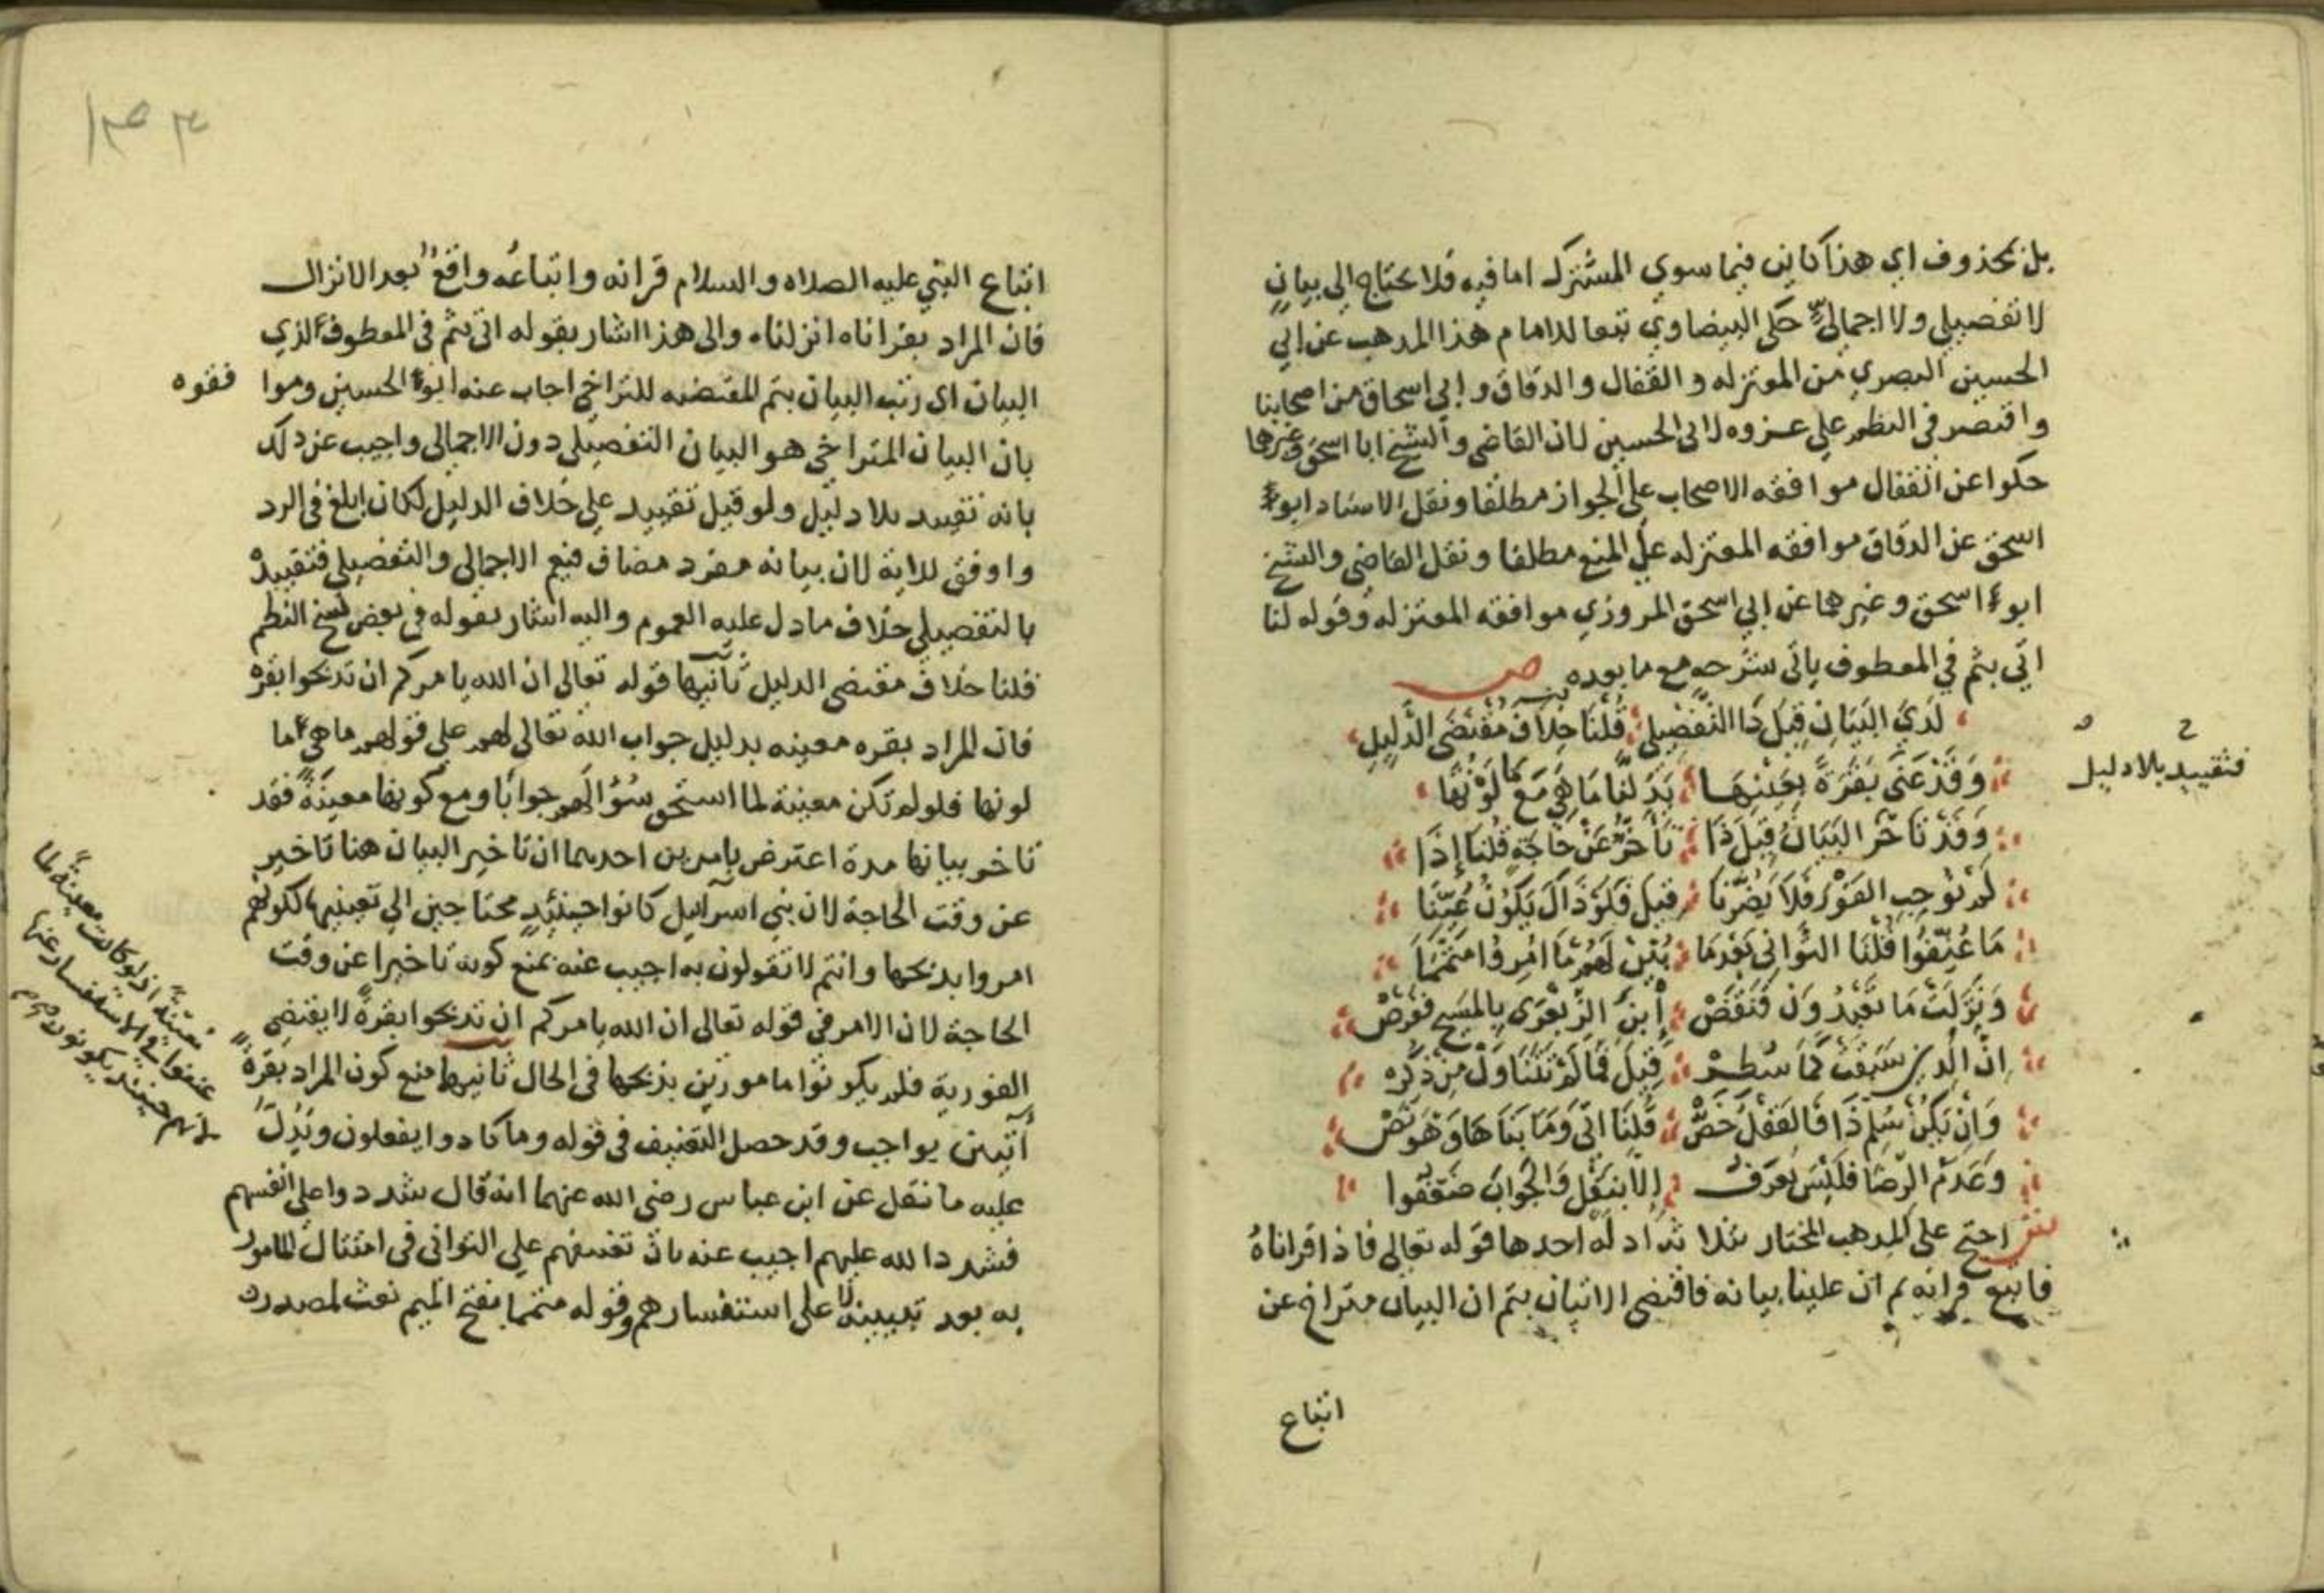 بل بمحذوف اي هذا كاين فيما سوي المشترك اما فيه فلا يحتاج الى بيان
لا تفصيلي ولا اجمالي حكى البيضاوي تبعا للامام هذا المذهب عن ابي
الحسين البصري من المعتزله و القفال والدقاق و ابي اسحاق من اصحابنا
واقتصر في النظم على عزوه لابي الحسين لان القاضي والشيخ ابا اسحق وغيرها
حكوا عن القفال موافقه الاصحاب على الجواز مطلقا ونقل الاستاد ابو
اسحق عن الدقاق موافقه المعتزله على المنع مطلقا ونقل القاضي والشيخ
ابو اسحق وغيرهما عن ابي اسحق المروزي موافقه المعتزله وقوله لنا
اتي بثم في المعطوف ياتى شرحه مع ما بعده ص
لدي البيان قيل ذا التفصيلي قلنا خلاف مقتضى الدليل
فتقييد بلا دليل
وقد عنى بقرة بعينها بدلنا ما هي مع ما لونها
وقد تاخر البيان قيل ذا تاخر عن حاجة قلنا إذا
لم توجب الفور فلا يضرنا قيل فلو ذاك يكون عينا
ما عنفوا قلنا التواني بعد ما بين لهم ما امروا متمما
ونزلت ما تعبدون فنقض ابن الزبعرى بالمسيح فعرض
ان الذين سبقت كما سطر قيل فما لم تتناول من ذكره
وان يكن سلم ذا فالعقل خص قلنا اتى وما بناها وهو نص
وعدم الرضا فليس يعرف الا بنقل والجواب ضعفوا
ش احتج على المذهب المختار بثلاثة ادلة احدها قوله تعالى فاذا قراناه
فاتبع قرانه ثم ان علينا بيانه فاقتضى الاتيان بثم ان البيان متراخ عن
اتباع
اتباع النبي عليه الصلاه والسلام قرانه واتباعه واقع بعد الانزال
فان المراد بقراناه انزلناه والى هذا اشار بقوله اتى بثم في المعطوف الذي
البيان اى رتب البيان بثم المقتضيه للتراخي اجاب عنه ابو الحسين وموا
فقوه
بان البيان المتراخي هو البيان التفصيلي دون الاجمالي واجيب عن ذلك
بانه تقييد بلا دليل ولو قيل تقييد على خلاف الدليل لكان ابلغ في الرد
واوفق للاية لان بيانه مفرد مضاف فيعم الاجمالي والتفصيلي فتقييده
بالتفصيلي خلاف ما دل عليه العموم واليه اشار بقوله في بعض نسخ النظم
قلنا خلاف مقتضى الدليل ثانيها قوله تعالى ان الله يامركم ان تذبحوا بقرة
فان المراد بقره معينه بدليل جواب الله تعالى لهم على قولهم ما هي ما
لونها فلو لم تكن معينة لما استحق سؤالهم جوابا ومع كونها معينة فقد
تاخر بيانها مدة اعترض بامرين احدهما ان تاخير البيان هنا تاخير
عن وقت الحاجة لان بني اسرآيل كانوا حينئيد محتاجين الى تعيينها لكونهم
امروا بذبحها وانتم لا تقولون به اجيب عنه بمنع كونه تاخيرا عن وقت
الحاجة لان الامر في قوله تعالى ان الله يامركم ان تذبحوا بقرة لا يقتضي
الفورية فلم يكونوا مامورين بذبحها في الحال ثانيها منع كون المراد بقرة
معينة اذ لو كانت معينة لما
عنفوا الاستفسار عنها
لانهم حينئذ يكونون
آتين بواجب وقد حصل التعنيف في قوله وما كادوا يفعلون ويدل
عليه ما نقل عن ابن عباس رضي الله عنهما انه قال شددوا على انفسهم
فشدد الله عليهم اجيب عنه بان تعنيفهم على التوانى في امتثال المامور
به بعد تبيينه لا على استفسارهم وقوله متمما بفتح الميم نعت لمصدره